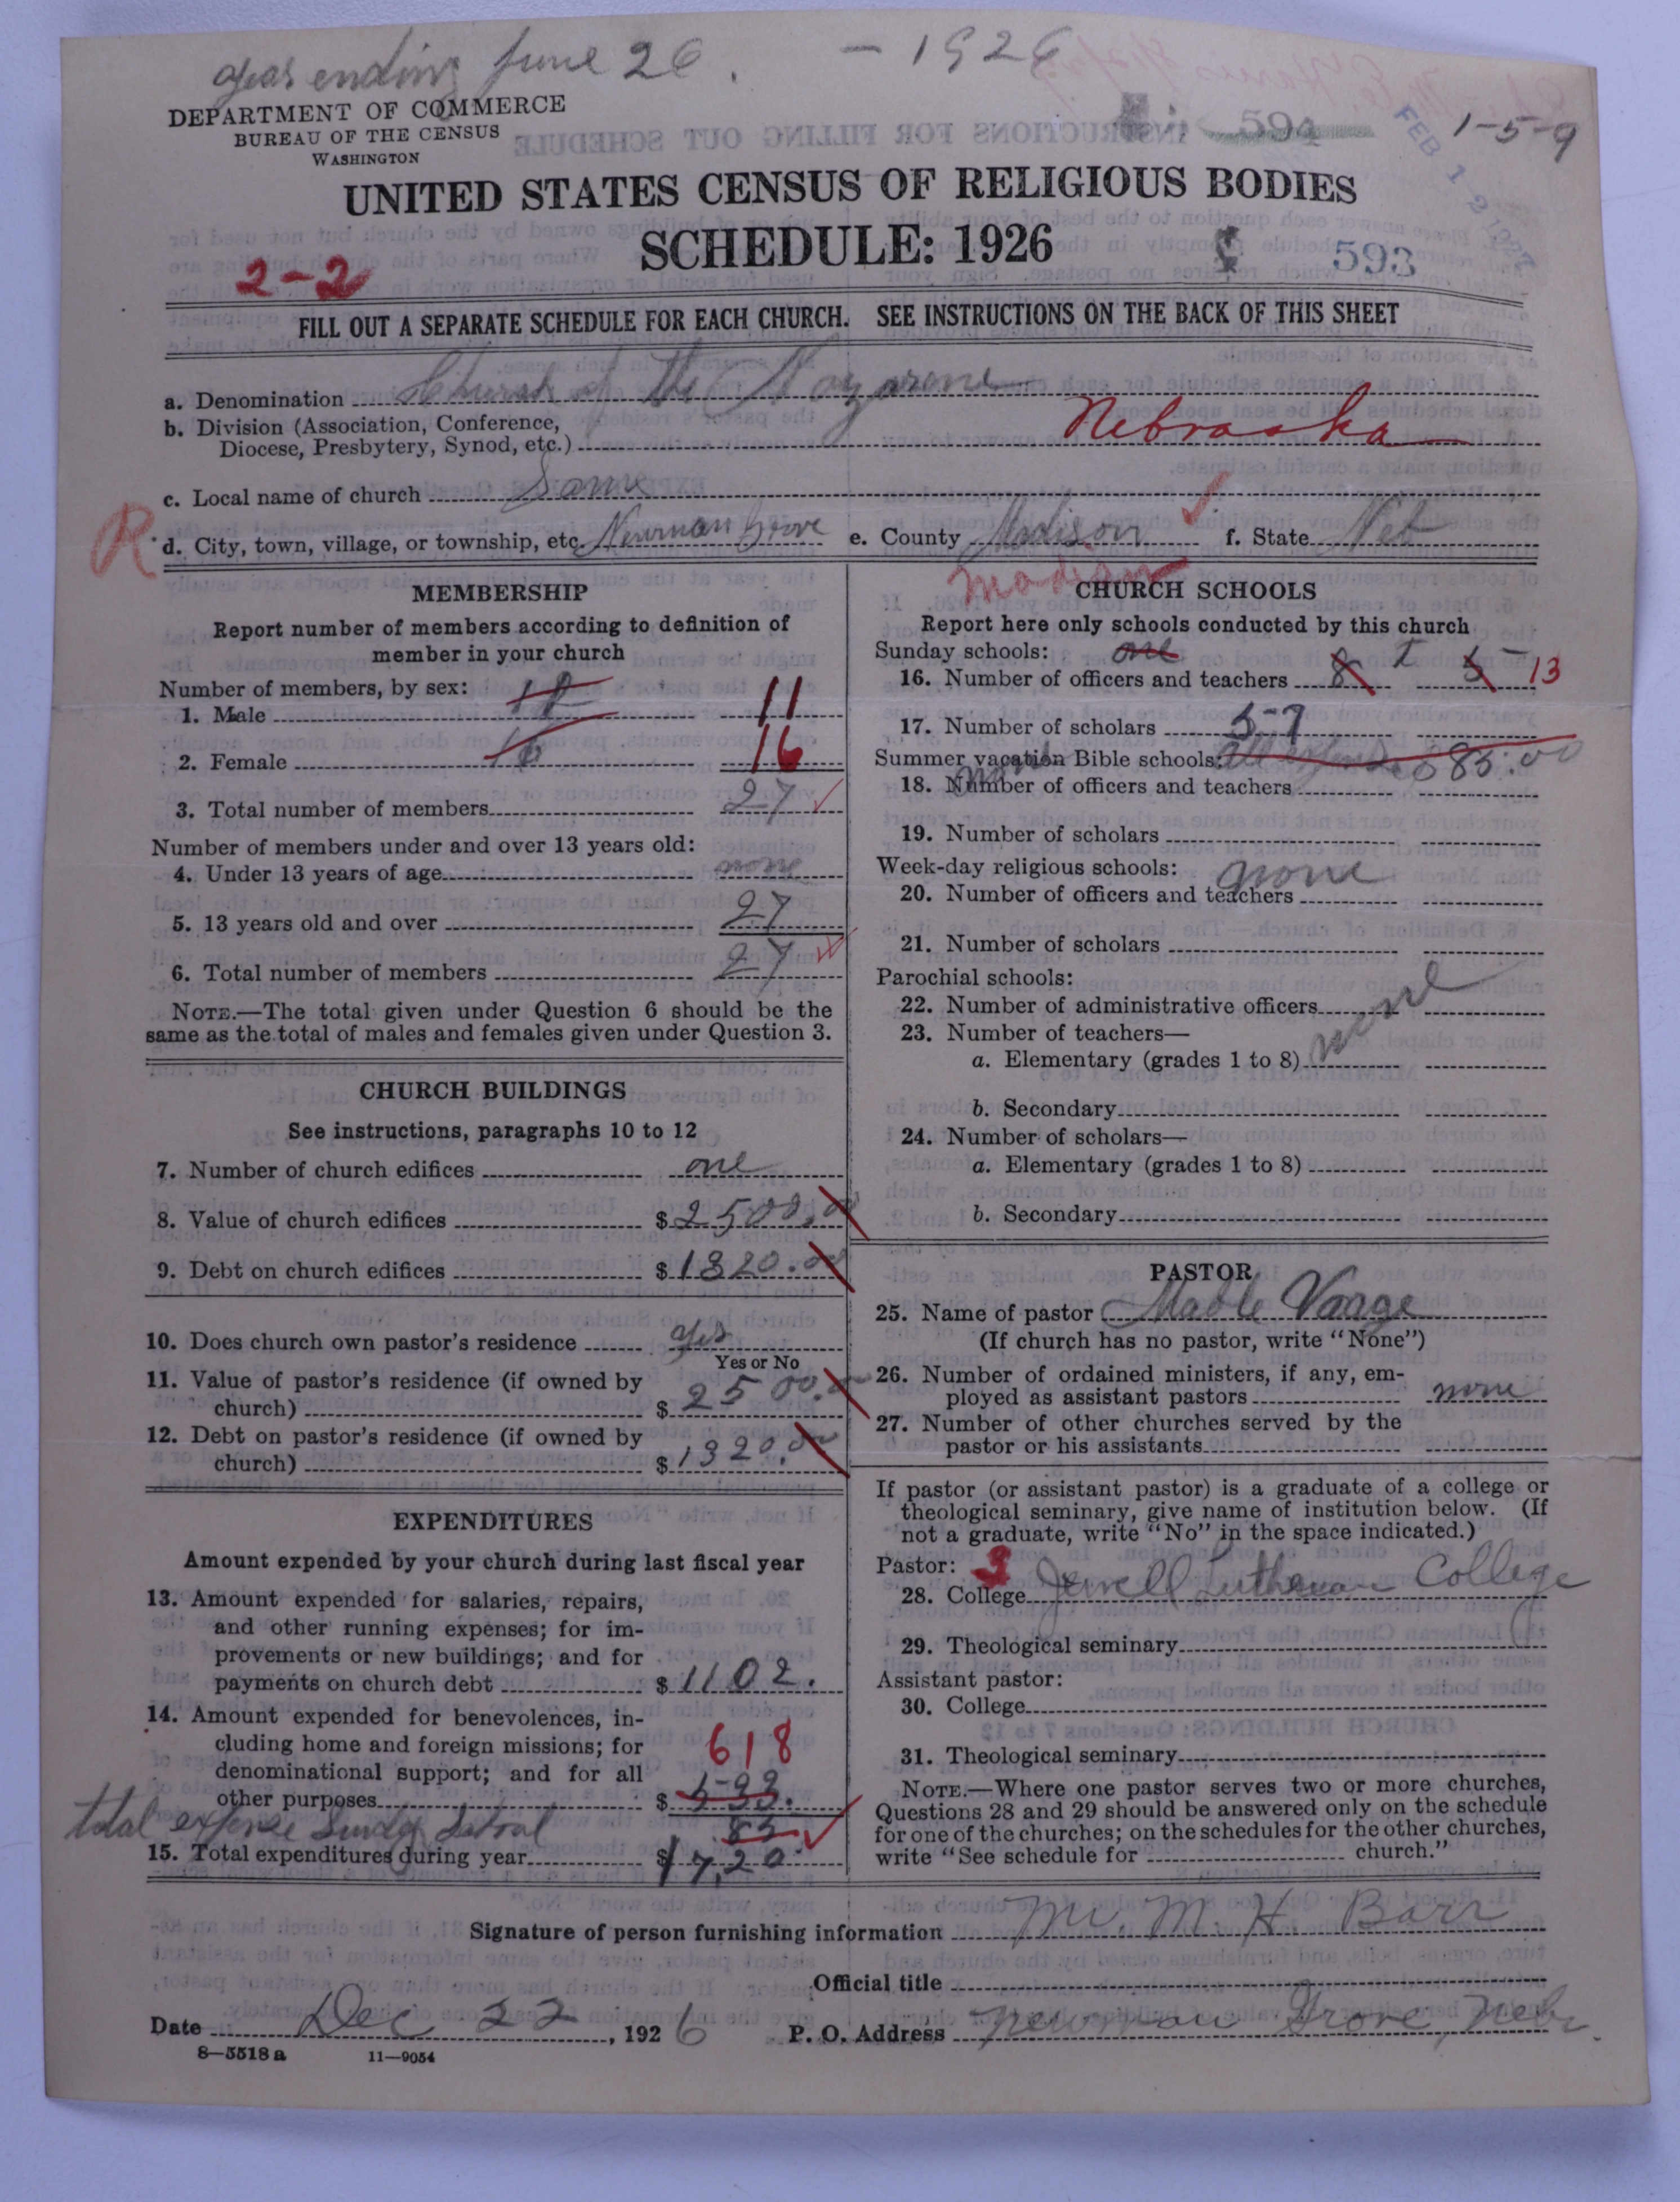 year ending June 26. - 1926
DEPARTMENT OF COMMERCE
BUREAU OF THE CENSUS
WASHINGTON
594
1-5-9
FEB 12 1927
UNITED STATES CENSUS OF RELIGIOUS BODIES
SCHEDULE: 1926
593
2-2
FILL OUT A SEPARATE SCHEDULE FOR EACH CHURCH. SEE INSTRUCTIONS ON THE BACK OF THIS SHEET
a. Denomination Church of the Nazarene
b. Division (Association, Conference,
Diocese, Presbytery, Synod, etc.) Nebraska
c. Local name of church Same
R
d. City, town, village, or township, etc. Newman Grove e. County Madison f. State Neb
Madison
MEMBERSHIP
Report number of members according to definition of
member in your church
Number of members, by sex:
1. Male 11
2. Female 16 16
3. Total number of members 27
Number of members under and over 13 years old:
4. Under 13 years of age none
5. 13 years old and over 27
6. Total number of members 27
NOTE.—The total given under Question 6 should be the
same as the total of males and females given under Question 3.
CHURCH BUILDINGS
See instructions, paragraphs 10 to 12
7. Number of church edifices one
8. Value of church edifices $2500.00
9. Debt on church edifices $1320.00
10. Does church own pastor's residence yes
Yes or No
11. Value of pastor's residence (if owned by
church) $2500.00
12. Debt on pastor's residence (if owned by
church) $1320.00
EXPENDITURES
Amount expended by your church during last fiscal year
13. Amount expended for salaries, repairs,
and other running expenses; for im-
provements or new buildings; and for
payments on church debt $1102.
14. Amount expended for benevolences, in-
cluding home and foreign missions; for
denominational support; and for all
other purposes $533.
618
total expense Sunday School 85
15. Total expenditures during year $1720
CHURCH SCHOOLS
Report here only schools conducted by this church
Sunday schools: one
16. Number of officers and teachers 8 T 5 13
17. Number of scholars 57
Summer vacation Bible schools: 85.00
none
18. Number of officers and teachers
19. Number of scholars
Week-day religious schools: none
20. Number of officers and teachers
21. Number of scholars
Parochial schools:
22. Number of administrative officers none
23. Number of teachers—
a. Elementary (grades 1 to 8)
b. Secondary
24. Number of scholars—
a. Elementary (grades 1 to 8)
b. Secondary
PASTOR
25. Name of pastor Mable Vaage
(If church has no pastor, write "None")
26. Number of ordained ministers, if any, em-
ployed as assistant pastors none
27. Number of other churches served by the
pastor or his assistants
If pastor (or assistant pastor) is a graduate of a college or
theological seminary, give name of institution below. (If
not a graduate, write "No" in the space indicated.)
Pastor: 3
28. College Jewell Lutheran College
29. Theological seminary
Assistant pastor:
30. College
31. Theological seminary
NOTE.—Where one pastor serves two or more churches,
Questions 28 and 29 should be answered only on the schedule
for one of the churches; on the schedules for the other churches,
write "See schedule for church."
Signature of person furnishing information M. H. Barr
Official title
Date Dec 22, 1926 P. O. Address Newman Grove, Nebr.
8—5518 a 11—9054